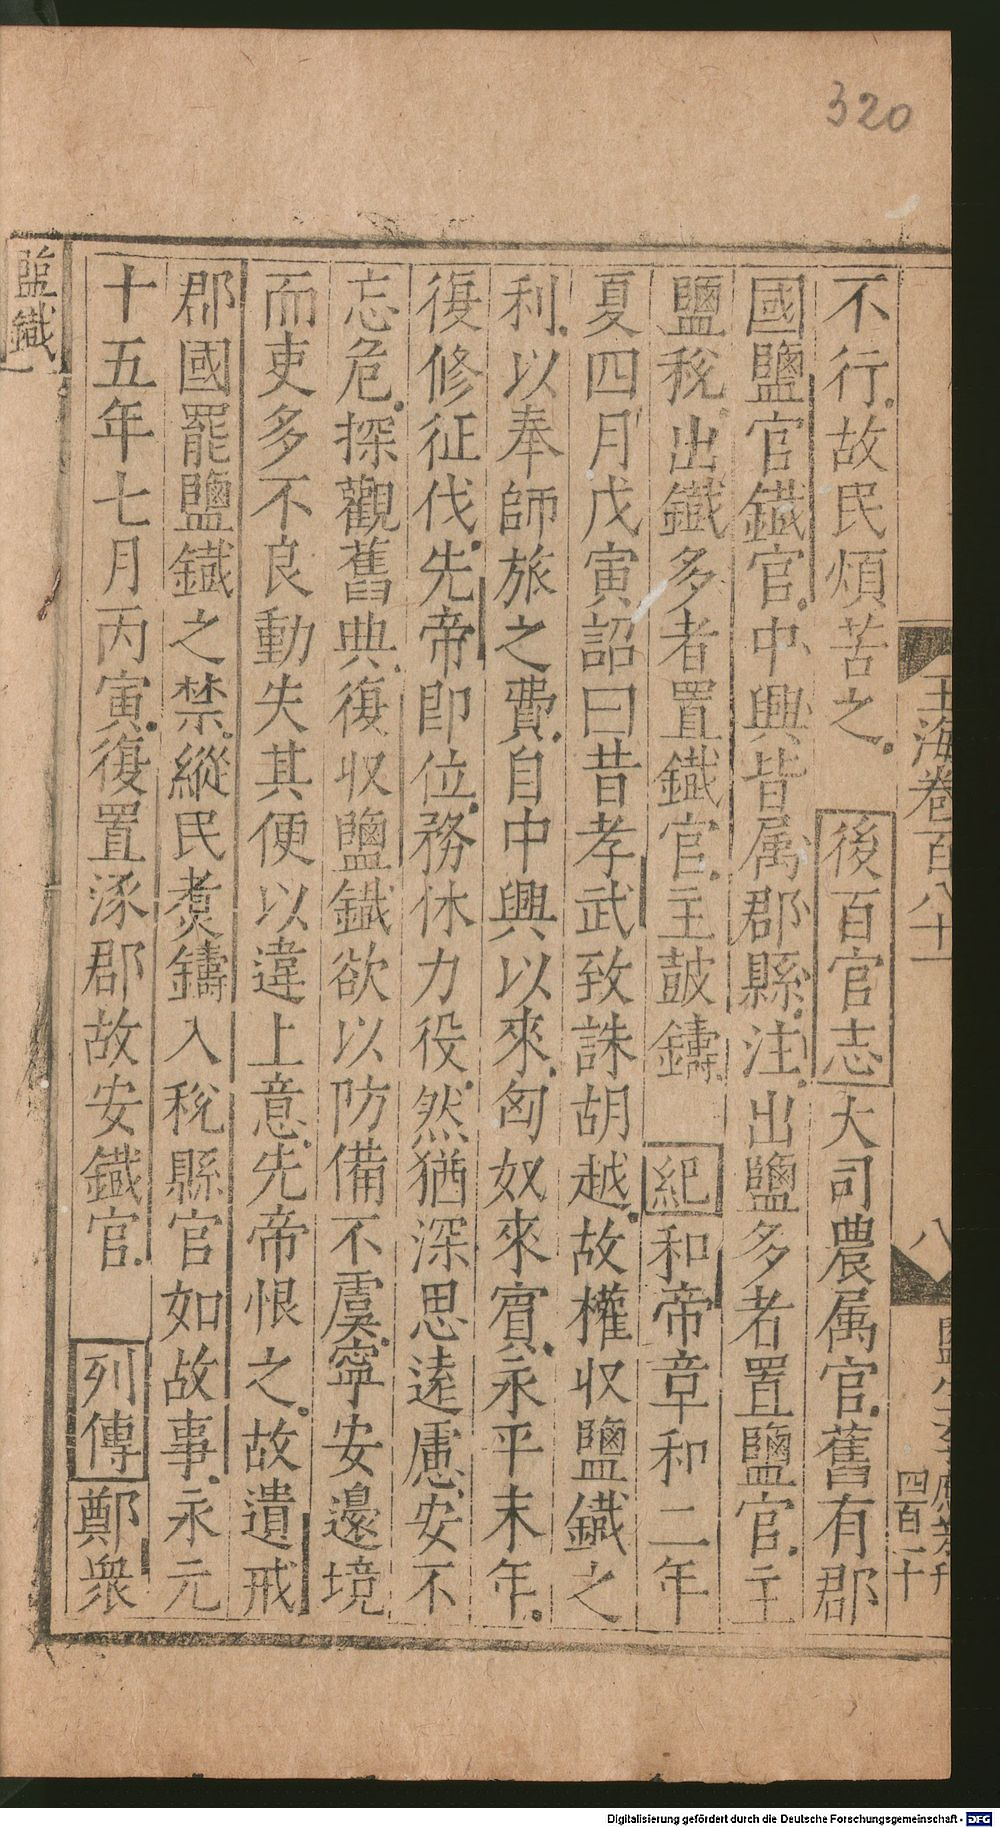 320
玉海卷百八十一
八
四百二十
不行故民煩苦之 後百官志大司農属官舊有郡
國鹽官鐵官中興皆属郡縣注出鹽多者置鹽官主
鹽稅出鐵多者置鐵官主鼓鑄 紀和帝章和二年
夏四月戊寅詔曰昔孝武致誅胡越故權収鹽鐵之
利以奉師旅之費自中興以來匈奴來賓永平末年
復修征伐先帝即位務休力役然猶深思遠慮安不
忘危探觀舊典復収鹽鐵欲以防備不虞寧安邊境
而吏多不良動失其便以違上意先帝恨之故遺戒
郡國罷鹽鐵之禁縱民煑鑄入稅縣官如故事永元
十五年七月丙寅復置涿郡故安鐵官 列傳鄭衆
鹽鐵
Digitalisierung gefördert durch die Deutsche Forschungsgemeinschaft - DFG